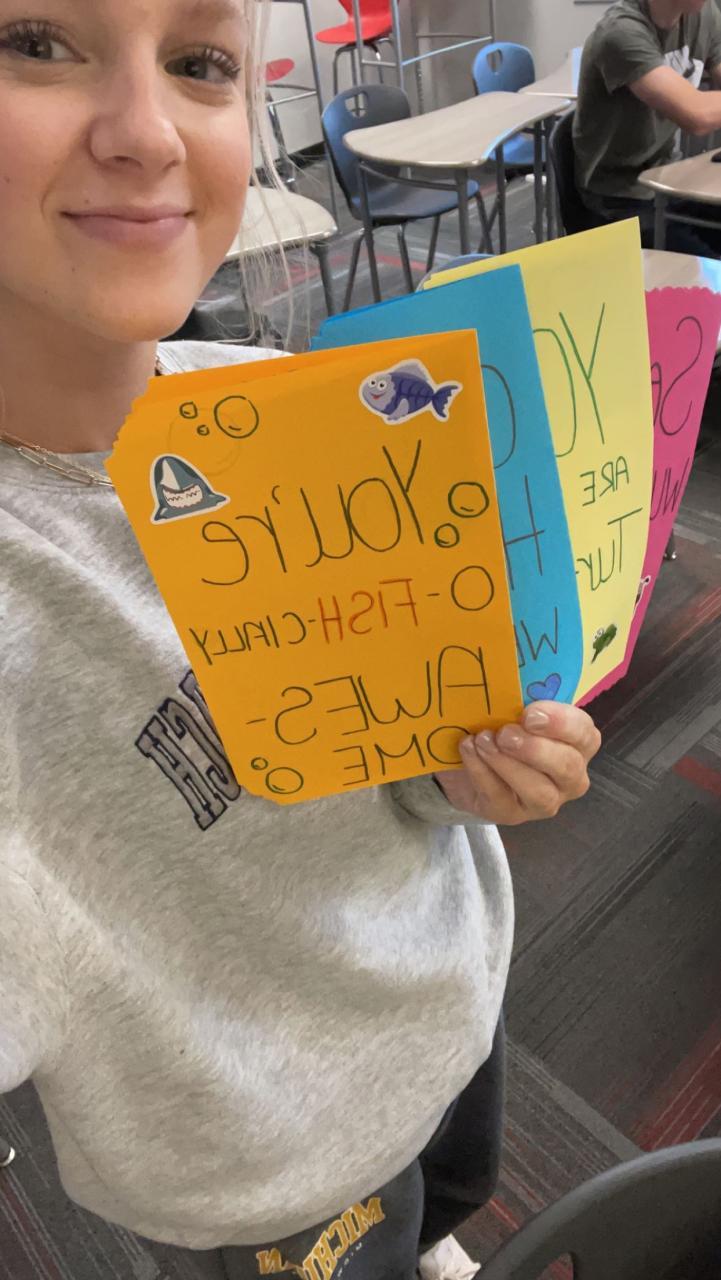 You're
O-FISH-CIALLY
AWES-
OME
YO
ARE
Tur
CH
MICHI